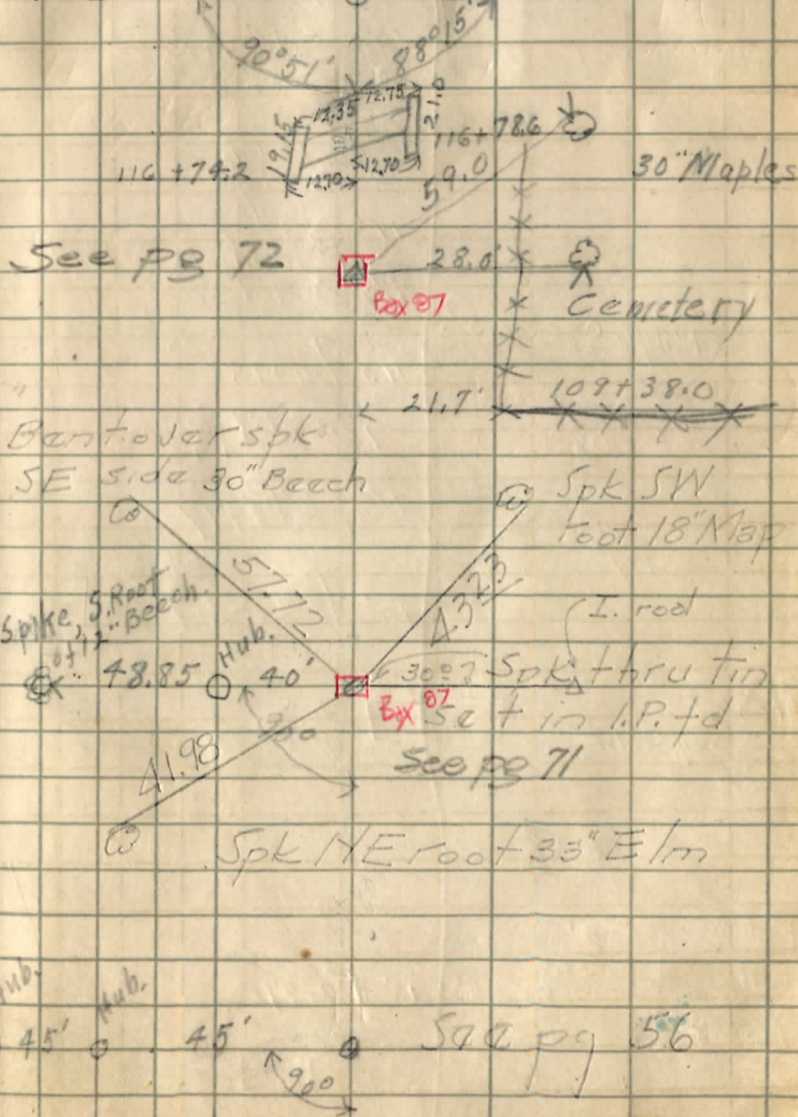 90°51' 88°15'
12.35 12.75 21.0
19.15 116+78.6
116+74.2 12.70 12.70 59.0 30" Maples
See pg 72 28.0'
Box 87 Cemetery
21.7' 109+38.0
Bent over spk
SE side 30" Beech Spk SW
root 18" Map
57.72 43.23
Spike, S. Root
of 12" Beech. Hub. I. rod
48.85 40' Spk thru tin
Box 87 Set in I.P. fd
90°
41.98 See pg 71
Spk NE root 33" Elm
Hub. Hub.
45' 45' See pg 56
90°